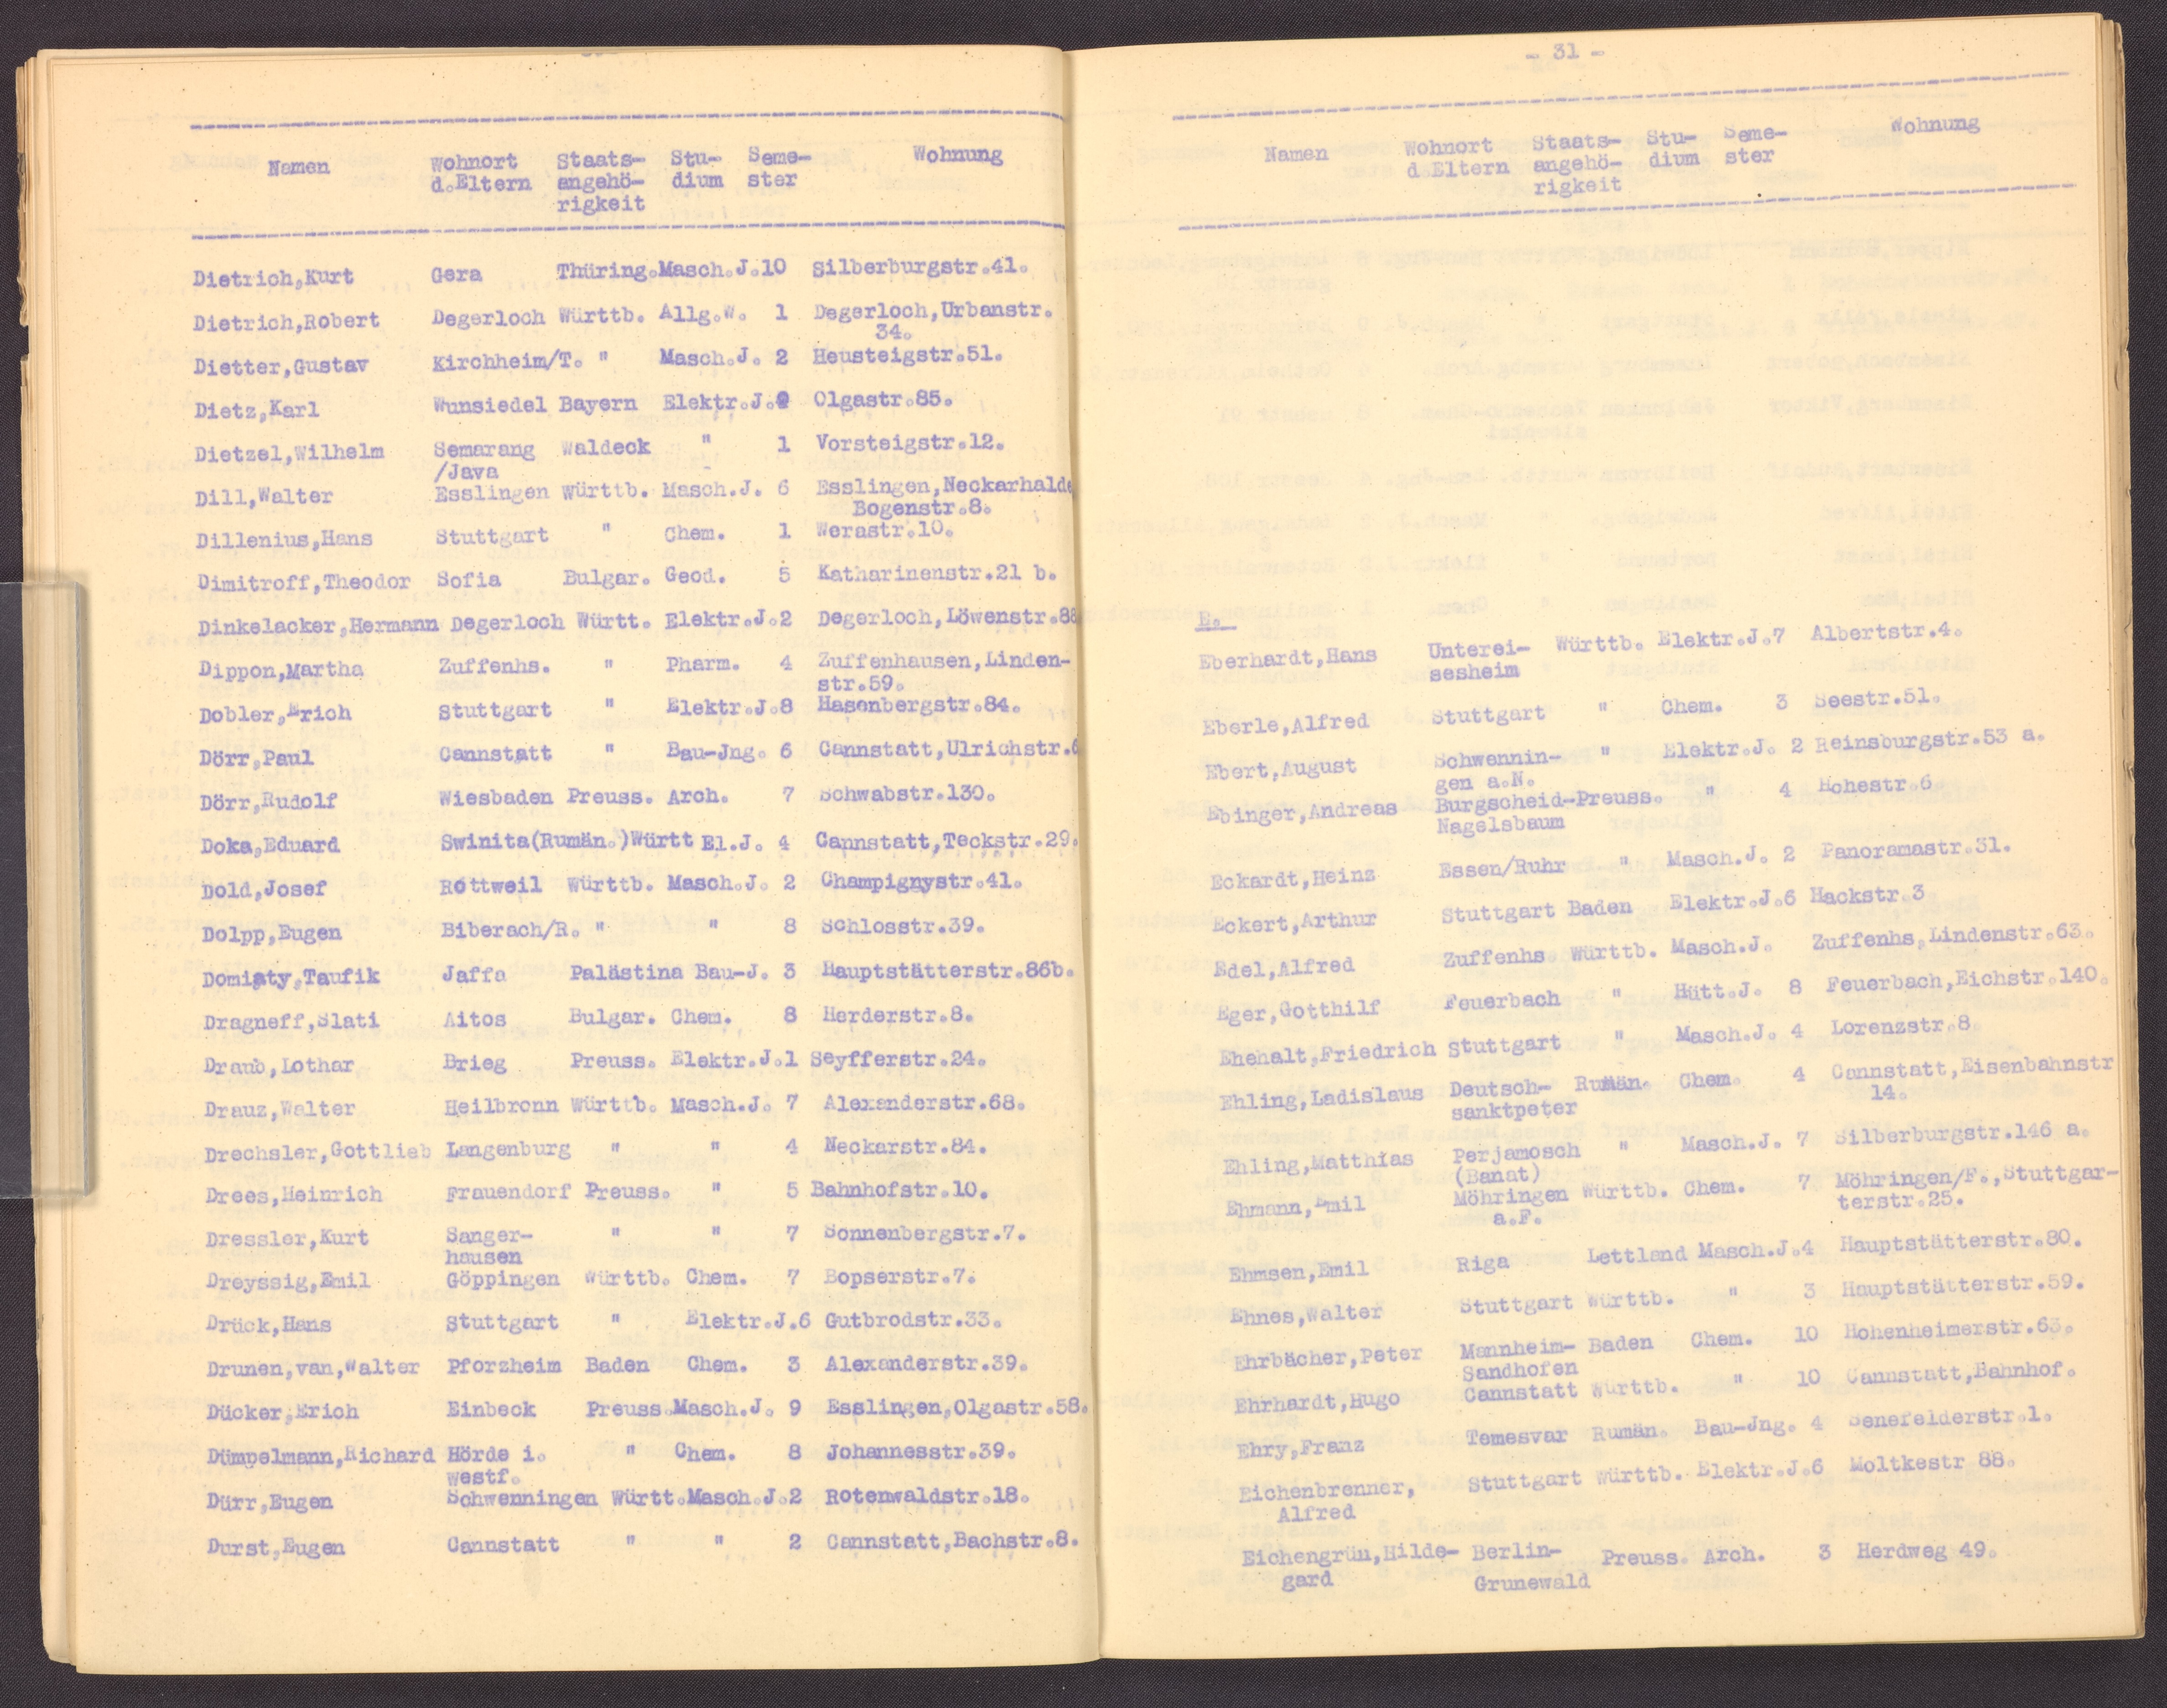 Namen Wohnort Staats- Stu- Seme- Wohnung
d.Eltern angehö- dium ster
rigkeit
Dietrich,Kurt Gera Thüring.Masch.J.10 Silberburgstr.41.
Dietrich,Robert Degerloch Württb. Allg.W. 1 Degerloch,Urbanstr.
34.
Dietter,Gustav Kirchheim/T. " Masch.J. 2 Heusteigstr.51.
Dietz,Karl Wunsiedel Bayern Elektr.J. Olgastr.85.
Dietzel,Wilhelm Semarang Waldeck " 1 Vorsteigstr.12.
/Java
Dill,Walter Esslingen Württb. Masch.J. 6 Esslingen,Neckarhalde
Bogenstr.8.
Dillenius,Hans Stuttgart " Chem. 1 Werastr.10.
Dimitroff,Theodor Sofia Bulgar. Geod. 5 Katharinenstr.21 b.
Dinkelacker,Hermann Degerloch Württ. Elektr.J.2 Degerloch,Löwenstr.88
Dippon,Martha Zuffenhs. " Pharm. 4 Zuffenhausen,Linden-
str.59.
Dobler,Erich Stuttgart " Elektr.J.8 Hasenbergstr.84.
Dörr,Paul Cannstatt " Bau-Jng. 6 Cannstatt,Ulrichstr.6
Dörr,Rudolf Wiesbaden Preuss. Arch. 7 Schwabstr.130.
Doka,Eduard Swinita(Rumän.)Württ El.J. 4 Cannstatt,Teckstr.29.
Dold,Josef Rottweil Württb. Masch.J. 2 Champignystr.41.
Dolpp,Eugen Biberach/R. " " 8 Schlosstr.39.
Domiaty,Taufik Jaffa Palästina Bau-J. 3 Hauptstätterstr.86b.
Dragneff,Slati Aitos Bulgar. Chem. 8 Herderstr.8.
Draub,Lothar Brieg Preuss. Elektr.J.1 Seyfferstr.24.
Drauz,Walter Heilbronn Württb. Masch.J. 7 Alexanderstr.68.
Drechsler,Gottlieb Langenburg " " 4 Neckarstr.84.
Drees,Heinrich Frauendorf Preuss. " 5 Bahnhofstr.10.
Dressler,Kurt Sanger- " " 7 Sonnenbergstr.7.
hausen
Dreyssig,Emil Göppingen Württb. Chem. 7 Bopserstr.7.
Drück,Hans Stuttgart " Elektr.J.6 Gutbrodstr.33.
Drunen,van,Walter Pforzheim Baden Chem. 3 Alexanderstr.39.
Dücker,Erich Einbeck Preuss.Masch.J. 9 Esslingen,Olgastr.58.
Dümpelmann,Richard Hörde i. " Chem. 8 Johannesstr.39.
Westf.
Dürr,Eugen Schwenningen Württ.Masch.J.2 Rotenwaldstr.18.
Durst,Eugen Cannstatt " " 2 Cannstatt,Bachstr.8.
- 31 -
Namen Wohnort Staats- Stu- Seme- Wohnung
d Eltern angehö- dium ster
rigkeit
E.
Eberhardt,Hans Unterei- Württb. Elektr.J.7 Albertstr.4.
sesheim
Eberle,Alfred Stuttgart " Chem. 3 Seestr.51.
Ebert,August Schwennin- " Elektr.J. 2 Reinsburgstr.53 a.
gen a.N.
Ebinger,Andreas Burgscheid-Preuss. " 4 Hohestr.6
Nagelsbaum
Eckardt,Heinz Essen/Ruhr " Masch.J. 2 Panoramastr.31.
Eckert,Arthur Stuttgart Baden Elektr.J.6 Hackstr.3
Edel,Alfred Zuffenhs Württb. Masch.J. Zuffenhs,Lindenstr.63.
Eger,Gotthilf Feuerbach " Hütt.J. 8 Feuerbach,Eichstr.140.
Ehehalt,Friedrich Stuttgart " Masch.J. 4 Lorenzstr.8.
Ehling,Ladislaus Deutsch- Rumän. Chem. 4 Cannstatt,Eisenbahnstr
sanktpeter 14.
Ehling,Matthias Perjamosch " Masch.J. 7 Silberburgstr.146 a.
(Banat)
Ehmann,Emil Möhringen Württb. Chem. 7 Möhringen/F.,Stuttgar-
a.F. terstr.25.
Ehmsen,Emil Riga Lettland Masch.J.4 Hauptstätterstr.80.
Ehnes,Walter Stuttgart Württb. " 3 Hauptstätterstr.59.
Ehrbächer,Peter Mannheim- Baden Chem. 10 Hohenheimerstr.63.
Sandhofen
Ehrhardt,Hugo Cannstatt Württb. " 10 Cannstatt,Bahnhof.
Ehry,Franz Temesvar Rumän. Bau-Jng. 4 Senefelderstr.1.
Eichenbrenner, Stuttgart Württb. Elektr.J.6 Moltkestr 88.
Alfred
Eichengrün,Hilde- Berlin- Preuss. Arch. 3 Herdweg 49.
gard Grunewald